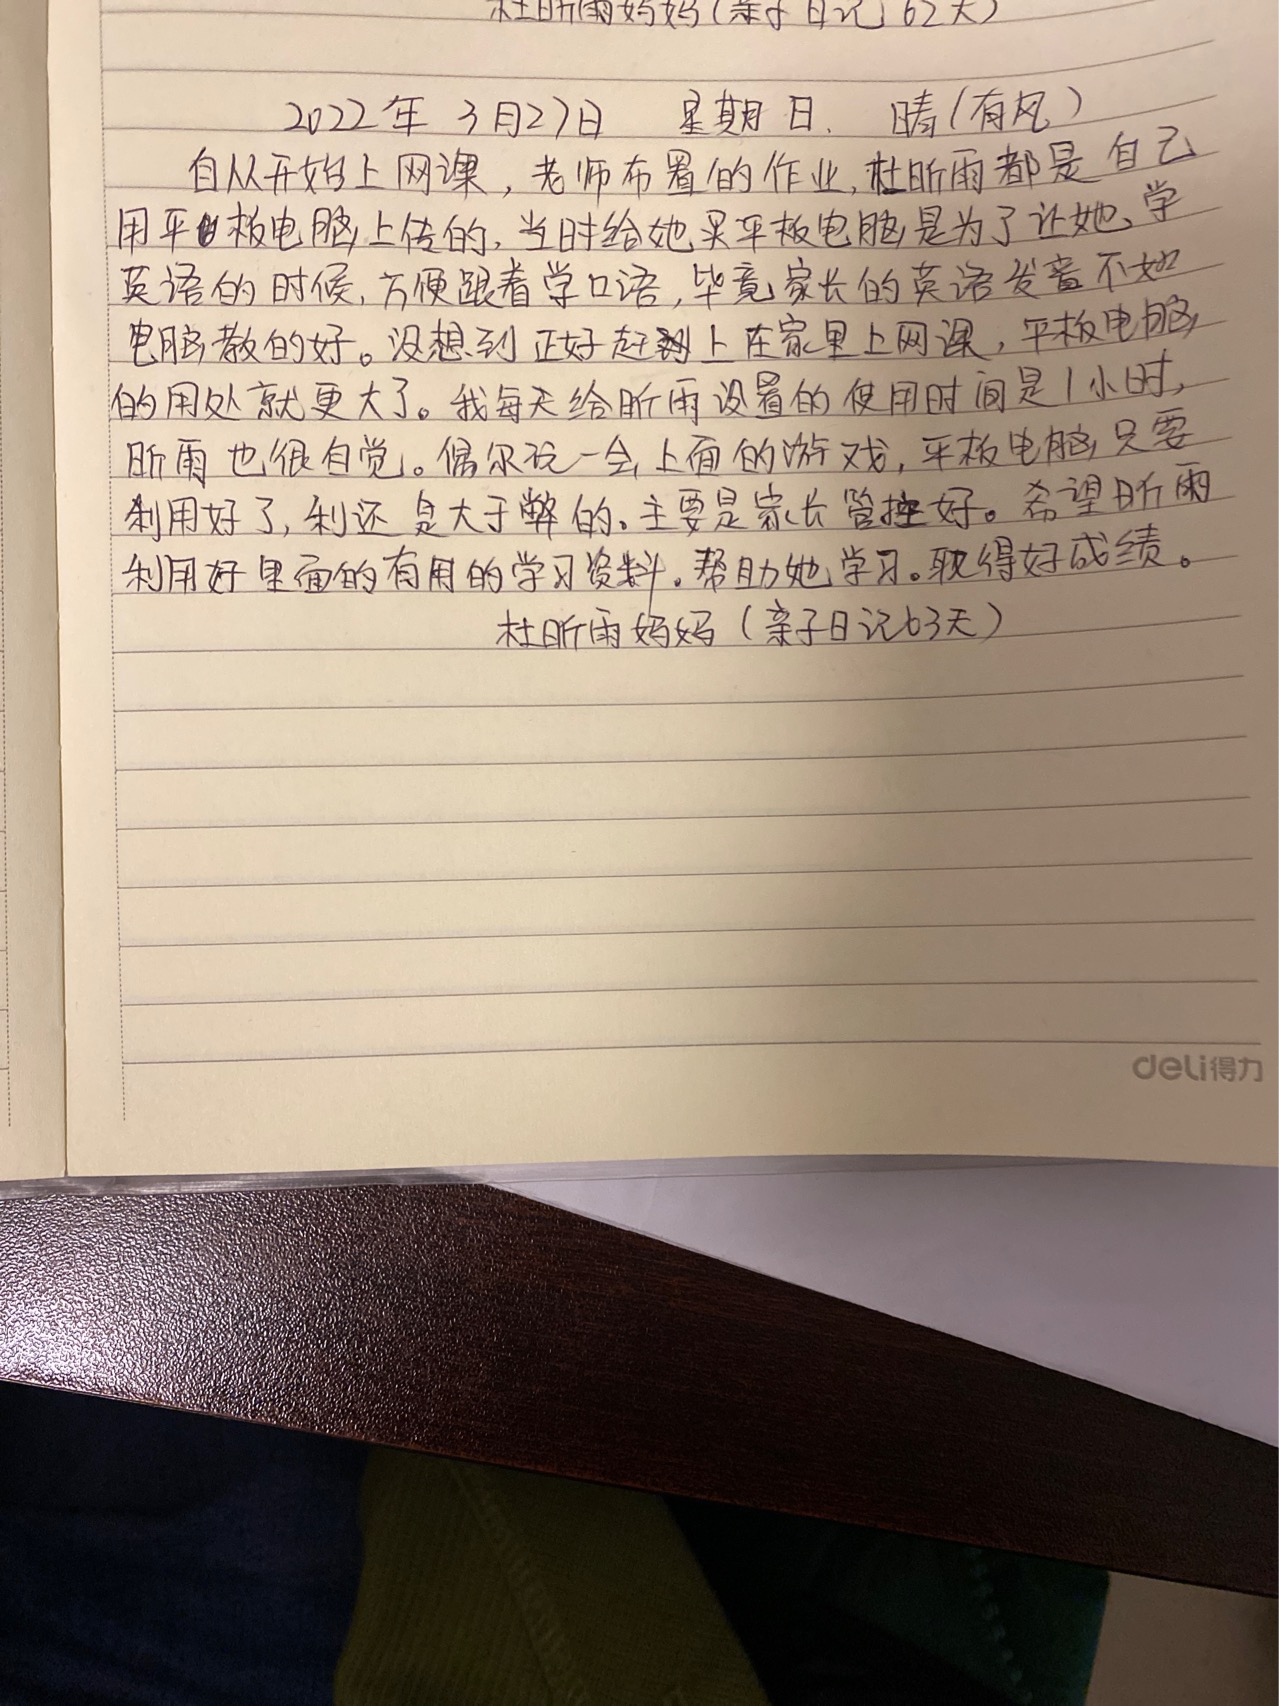 杜昕雨妈妈(亲子日记62天)
2022年 3月27日 星期日. 晴(有风)
自从开始上网课,老师布置的作业,杜昕雨都是自己
用平板电脑上传的,当时给她买平板电脑是为了让她学
英语的时候,方便跟着学口语,毕竟家长的英语发音不如
电脑教的好。没想到正好赶上在家里上网课,平板电脑
的用处就更大了。我每天给昕雨设置的使用时间是1小时,
昕雨也很自觉。偶尔玩一会上面的游戏,平板电脑只要
利用好了,利还是大于弊的。主要是家长管控好。希望昕雨
利用好里面的有用的学习资料。帮助她学习。取得好成绩。
杜昕雨妈妈(亲子日记63天)
deli得力